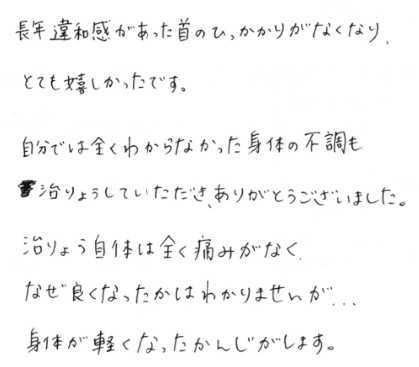 長年違和感があった首のひっかかりがなくなり、
とても嬉しかったです。
自分では全くわからなかった身体の不調も
治りょうしていただき、ありがとうございました。
治りょう自体は全く痛みがなく、
なぜ良くなったかはわかりませんが...
身体が軽くなったかんじがします。